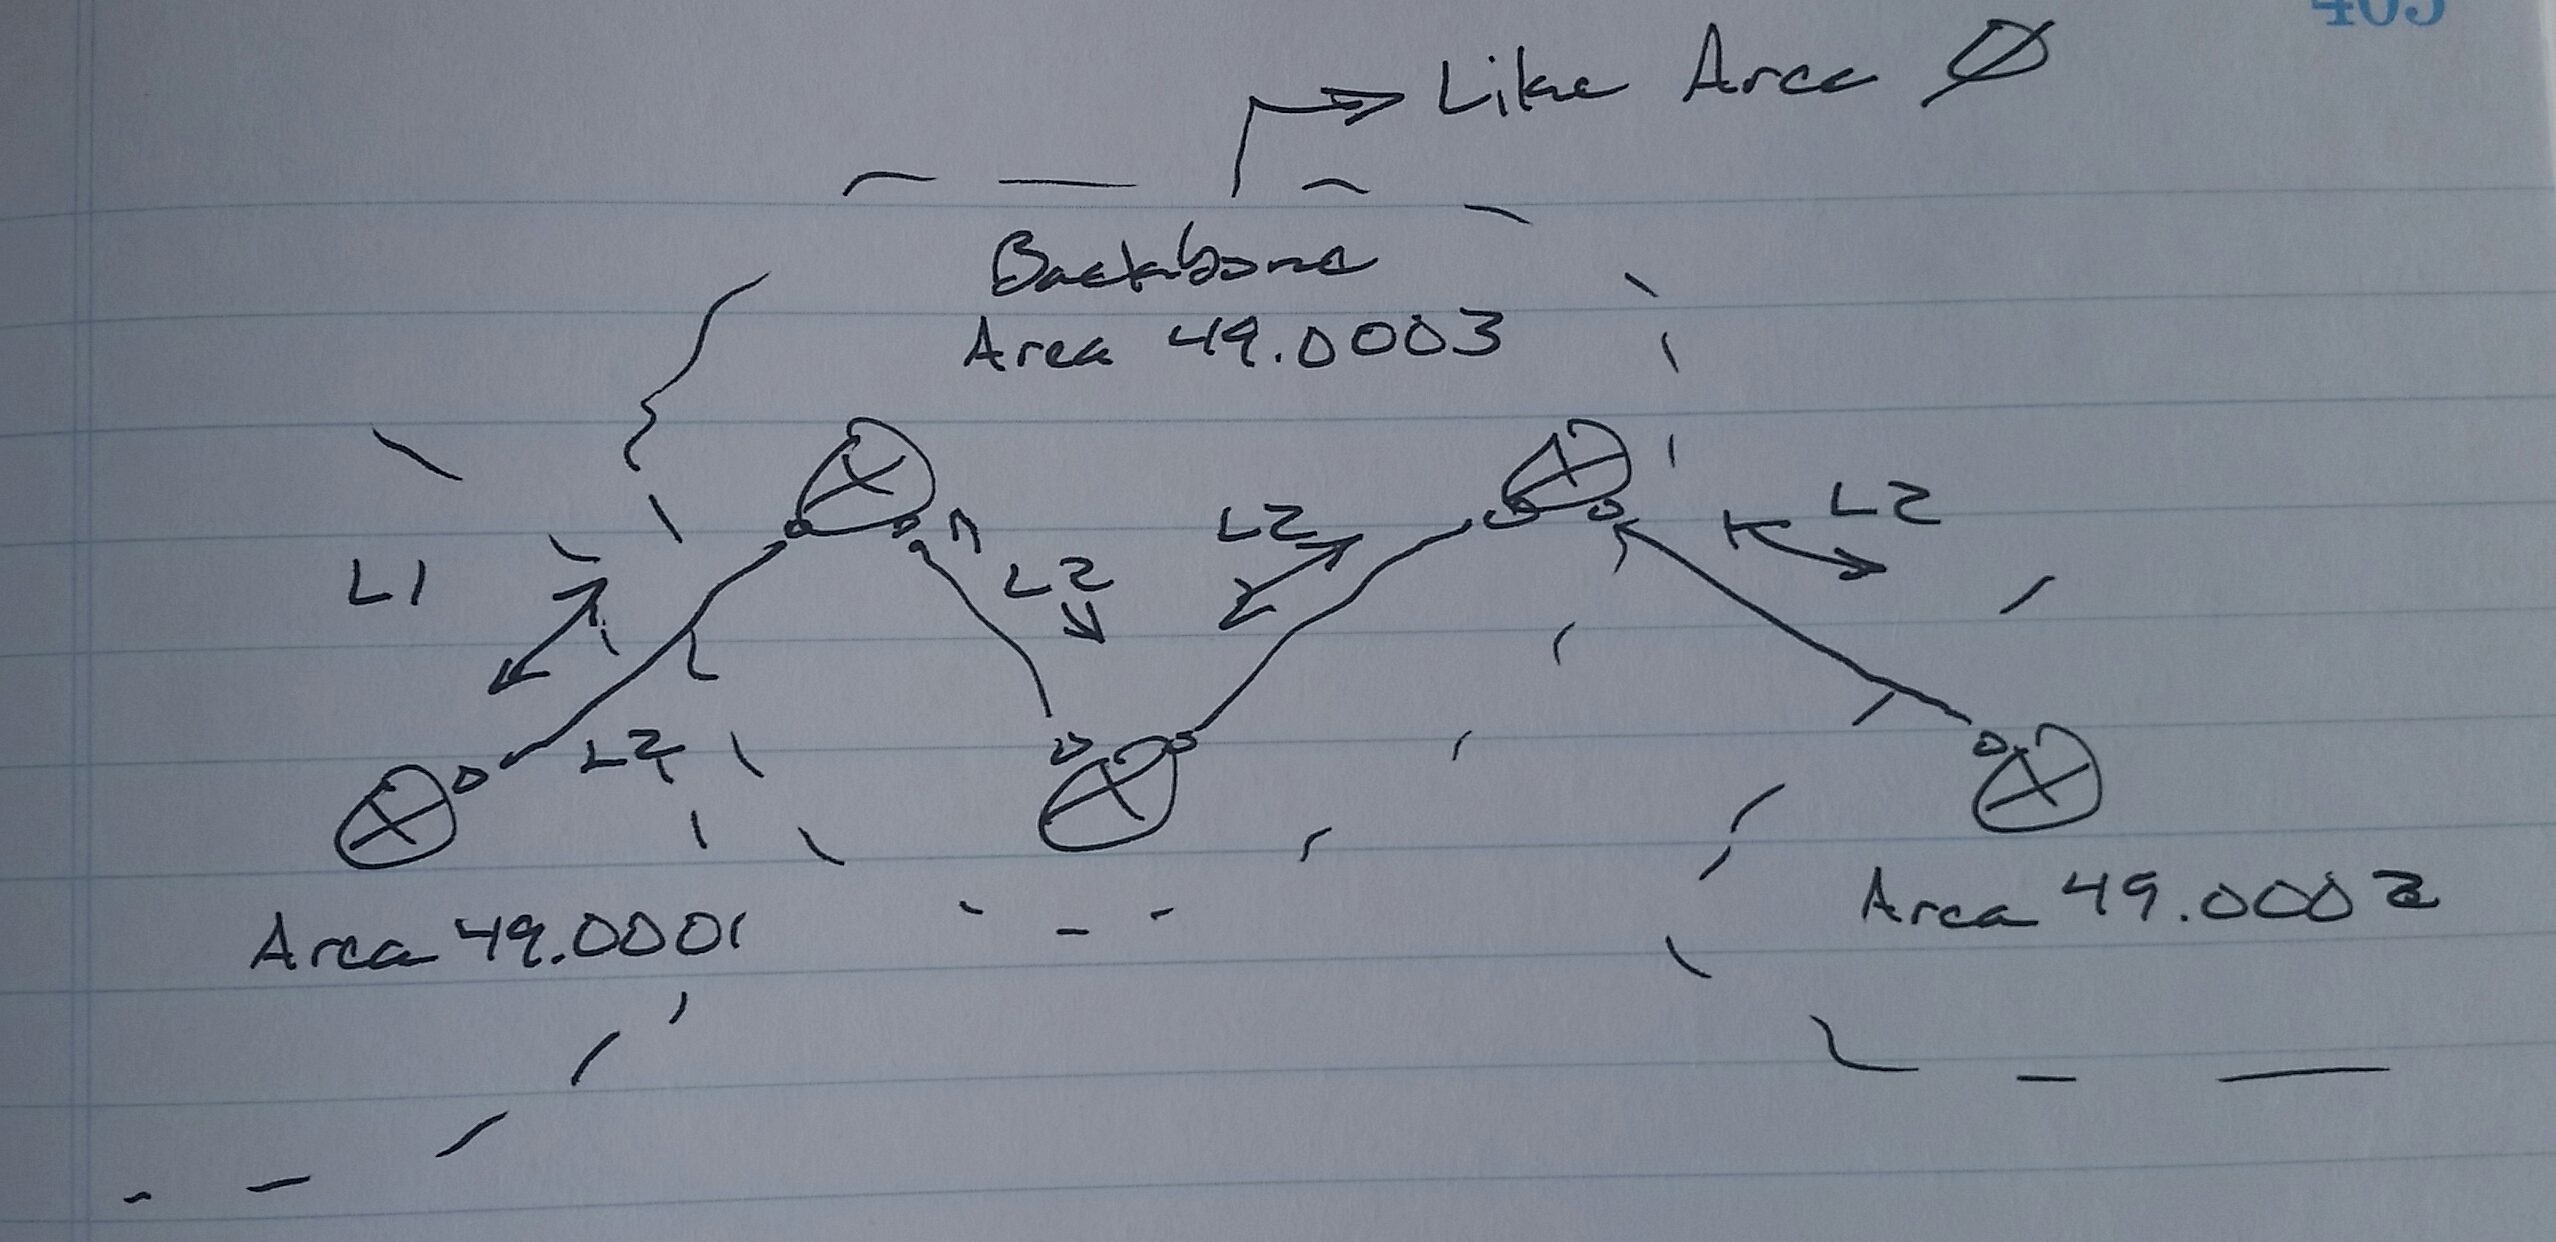 405
Like Area Ø
Backbone
Area 49.0003
L1
L2
L2
L2
L2
Area 49.0001
Area 49.0002